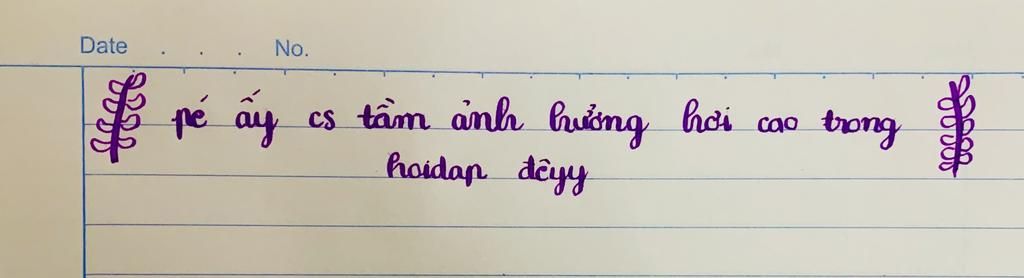 Date . . . No.
pé ấy cs tầm ảnh hưởng hơi cao trong
hoidap đêyy